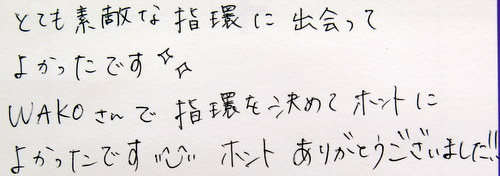 とても素敵な指環に出会って
よかったです✨
WAKOさんで指環を決めてホントに
よかったです"ᴗ" ホントありがとうございました!!